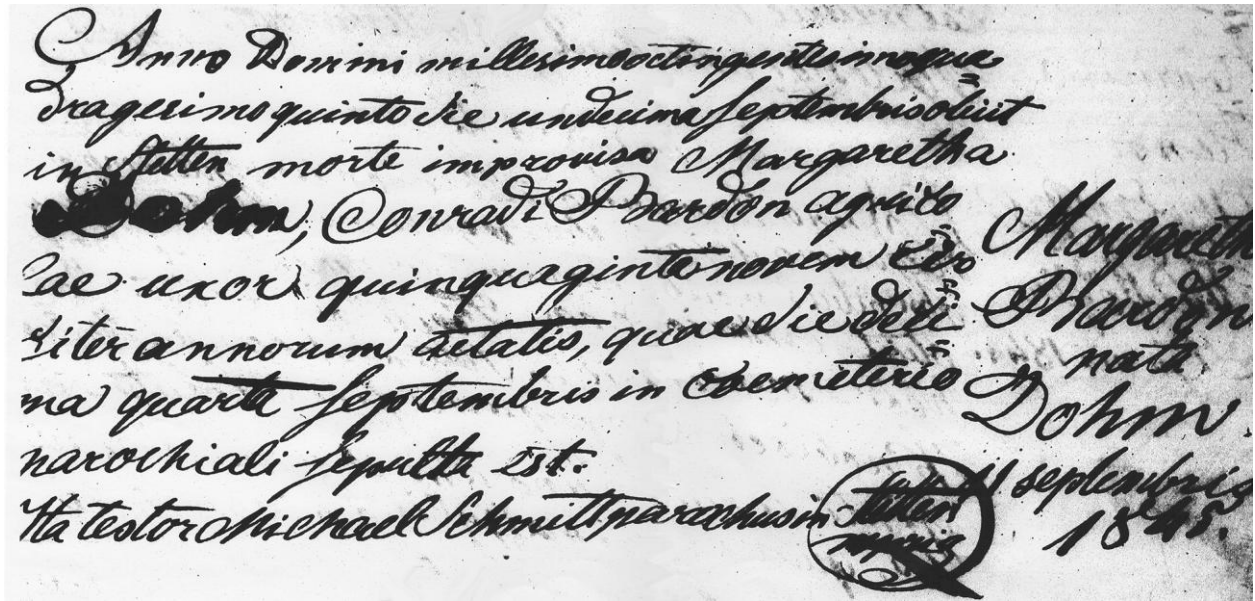 Anno Domini millesimo octingentesimo qua=
dragesimo quinto die undecima Septembris obiit
in Stetten morte improvisa Margaretha
Dohm, Conradi Bardon agrico=
lae uxor quinquaginta novem cir=
citer annorum aetatis, quae die deci=
ma quarta Septembris in coemeterio
parochiali sepulta est.
Ita testor Michael Schmitt parochus in Stetten
Margaretha
Bardon
nata
Dohm
11 septembris
1845.